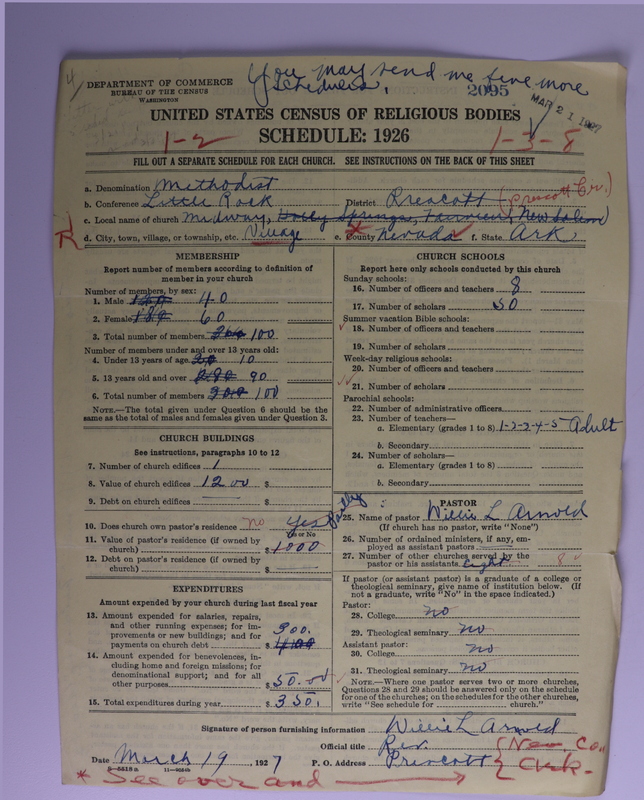 You may send me five more
Schedules.
4
DEPARTMENT OF COMMERCE
BUREAU OF THE CENSUS
WASHINGTON
2095
MAR 21 1927
UNITED STATES CENSUS OF RELIGIOUS BODIES
1-2 SCHEDULE: 1926 1-3-8
FILL OUT A SEPARATE SCHEDULE FOR EACH CHURCH. SEE INSTRUCTIONS ON THE BACK OF THIS SHEET
a. Denomination Methodist
b. Conference Little Rock District Prescott (Prescott Cir.)
c. Local name of church Midway, Holly Springs, Fairview, New Salem
d. City, town, village, or township, etc. Village e. County Nevada f. State Ark
MEMBERSHIP
Report number of members according to definition of
member in your church
Number of members, by sex:
1. Male 40
2. Female 180 60
3. Total number of members 100
Number of members under and over 13 years old:
4. Under 13 years of age 20 10
5. 13 years old and over 280 90
6. Total number of members 300 100
NOTE.—The total given under Question 6 should be the
same as the total of males and females given under Question 3.
CHURCH BUILDINGS
See instructions, paragraphs 10 to 12
7. Number of church edifices 1
8. Value of church edifices 1200 $
9. Debt on church edifices $
10. Does church own pastor's residence no Yes Partly
Yes or No
11. Value of pastor's residence (if owned by
church) $ 1000
12. Debt on pastor's residence (if owned by
church) $
EXPENDITURES
Amount expended by your church during last fiscal year
13. Amount expended for salaries, repairs,
and other running expenses; for im-
provements or new buildings; and for
payments on church debt $ 300.
14. Amount expended for benevolences, in-
cluding home and foreign missions; for
denominational support; and for all
other purposes $ 50.00
15. Total expenditures during year $ 350.
CHURCH SCHOOLS
Report here only schools conducted by this church
Sunday schools:
16. Number of officers and teachers 8
17. Number of scholars 50
Summer vacation Bible schools:
18. Number of officers and teachers
19. Number of scholars
Week-day religious schools:
20. Number of officers and teachers
21. Number of scholars
Parochial schools:
22. Number of administrative officers
23. Number of teachers—
a. Elementary (grades 1 to 8) 1-2-3-4-5 Adult
b. Secondary
24. Number of scholars—
a. Elementary (grades 1 to 8)
b. Secondary
PASTOR
25. Name of pastor Willie L Arnold
(If church has no pastor, write "None")
26. Number of ordained ministers, if any, em-
ployed as assistant pastors
27. Number of other churches served by the
pastor or his assistants Eight 8
If pastor (or assistant pastor) is a graduate of a college or
theological seminary, give name of institution below. (If
not a graduate, write "No" in the space indicated.)
Pastor:
28. College no
29. Theological seminary no
Assistant pastor:
30. College no
31. Theological seminary no
NOTE.—Where one pastor serves two or more churches,
Questions 28 and 29 should be answered only on the schedule
for one of the churches; on the schedules for the other churches,
write "See schedule for church."
Signature of person furnishing information Willie L Arnold
Official title Rev.
Date March 19, 1927 P. O. Address Prescott { Nev. Co. Ark.
8-5318 a 11-9054b
* See over and